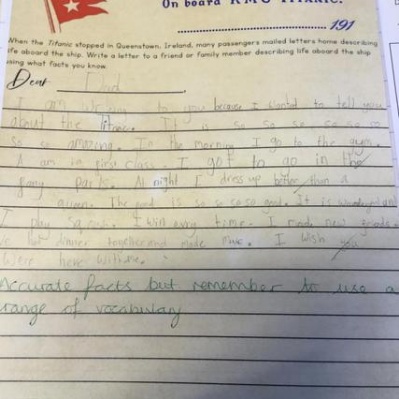 On board RMS TITANIC.
191
When the Titanic stopped in Queenstown, Ireland, many passengers mailed letters home describing
life aboard the ship. Write a letter to a friend or family member describing life aboard the ship
using what facts you know.
Dear Dad
I am writing to you because I wanted to tell you
about the Titanic. It is so so so so so so
so so amazing. In the morning I go to the gym.
I am in first class. I got to go in the
parts. At night I dress up better than a
queen. The food is so so so so good. It is wonderful and
I play I win every time. I made new
dinner together and made I wish you
were here with me.
Accurate facts but remember to use a
range of vocabulary